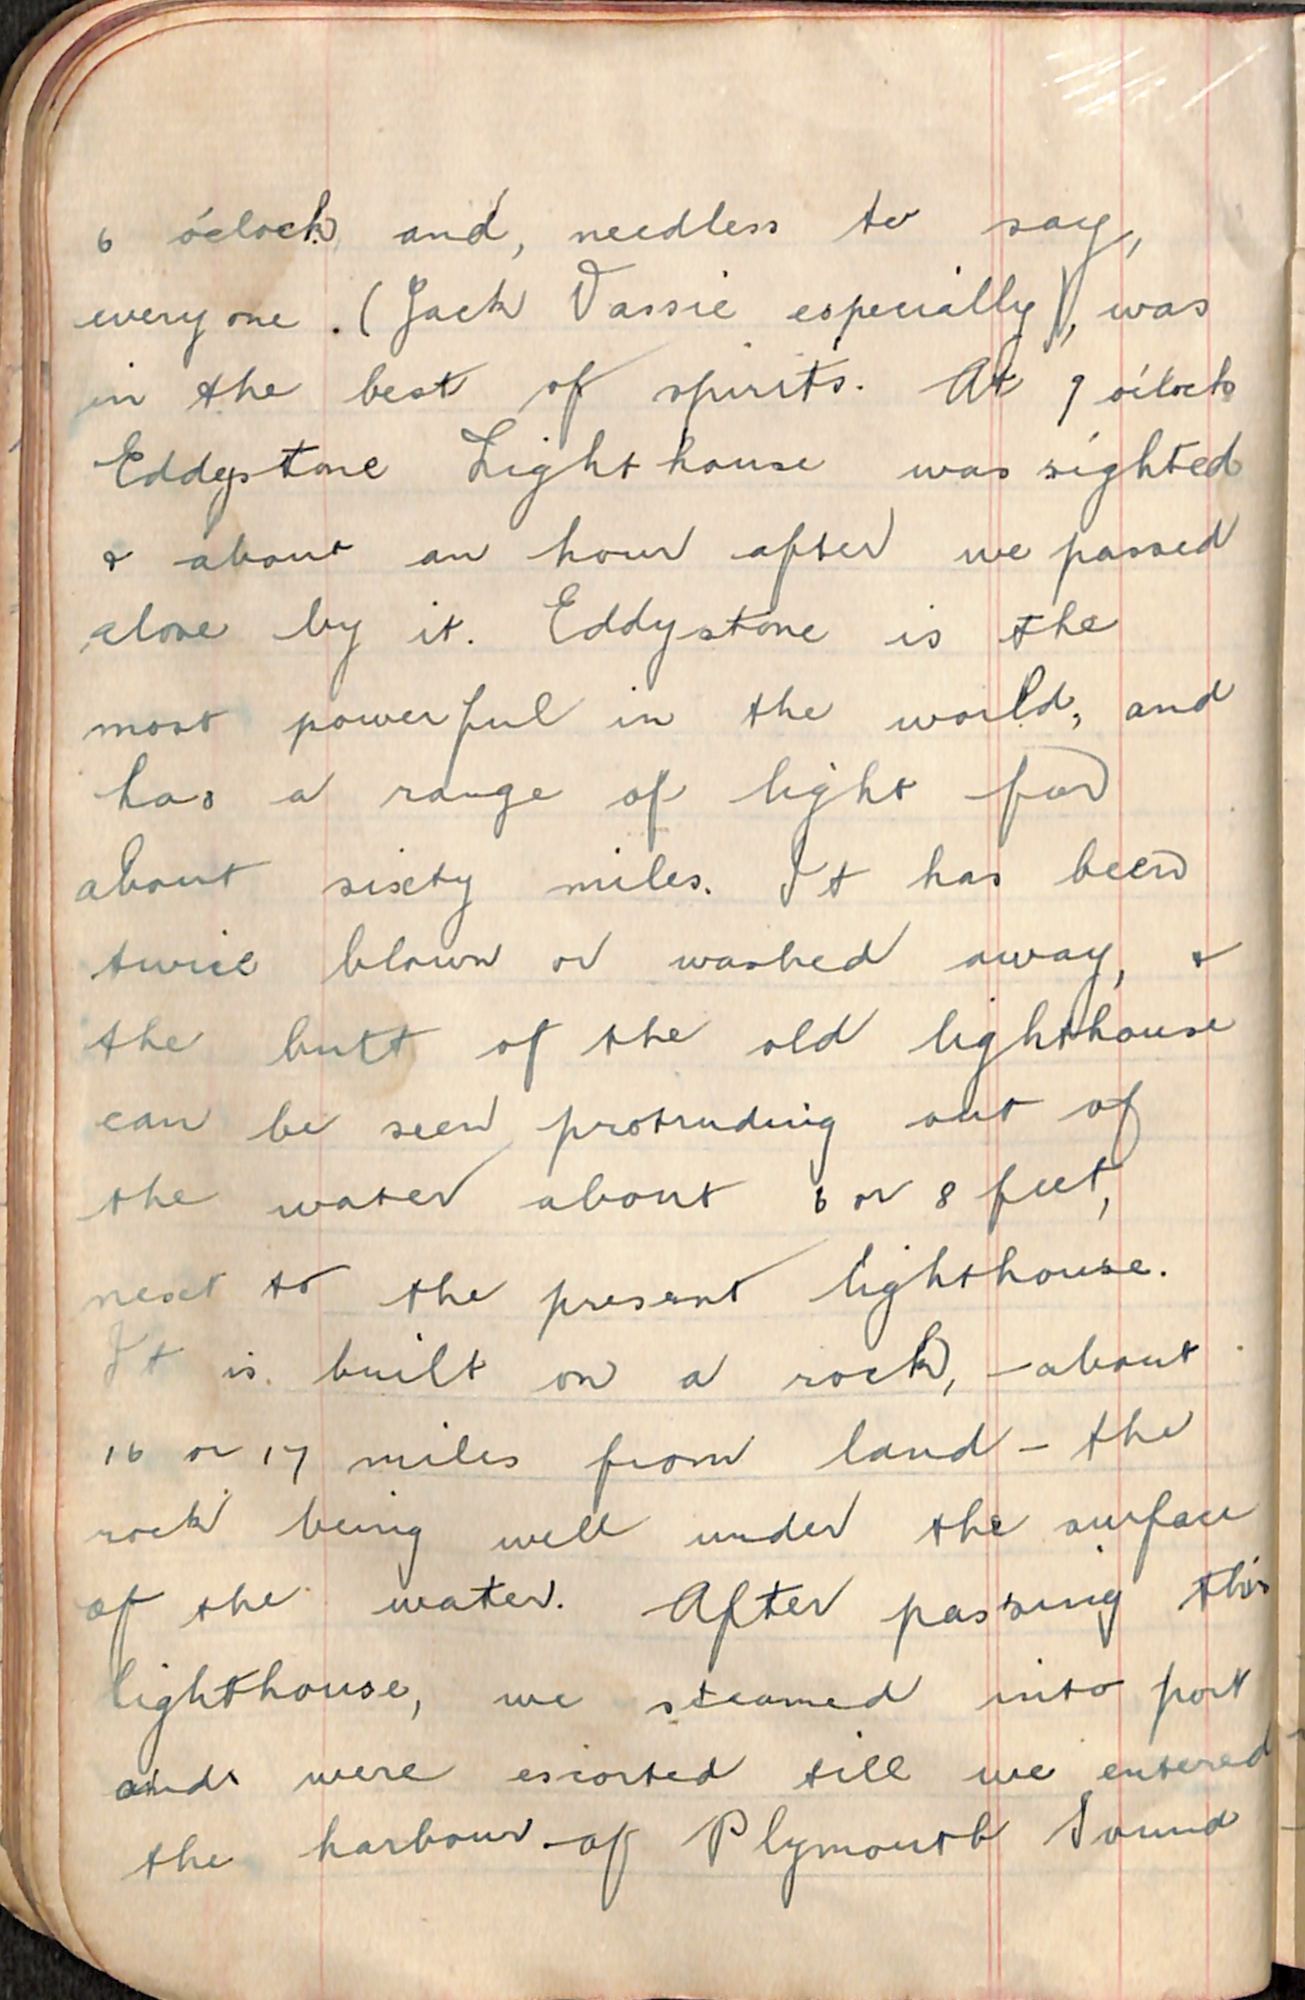 6 o'clock and, needless to say,
everyone (Jack Vassie especially), was
in the best of spirits. At 9 o'clock
Eddystone Lighthouse was sighted
& about an hour after we passed
close by it. Eddystone is the
most powerful in the world, and
has a range of light for
about sixty miles. It has been
twice blown or washed away, &
the butt of the old lighthouse
can be seen protruding out of
the water about 6 or 8 feet,
next to the present lighthouse.
It is built on a rock, - about
16 or 17 miles from land - the
rock being well under the surface
of the water. After passing this
lighthouse, we steamed into port
and were escorted till we entered
the harbour of Plymouth Sound